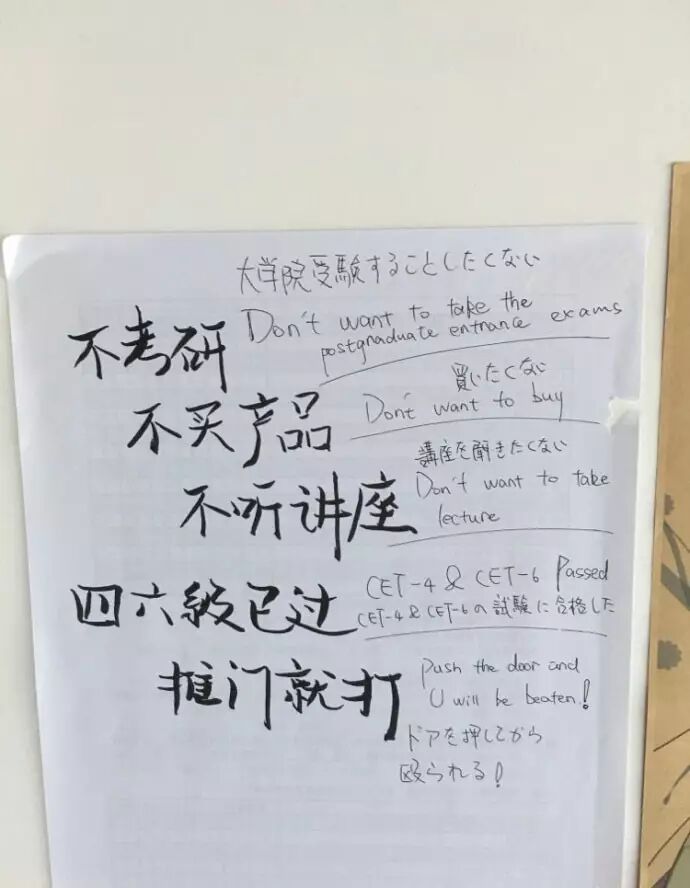 大学院受験することしたくない
不考研
Don't want to take the
postgraduate entrance exams
買いたくない
不买产品
Don't want to buy
講座を聞きたくない
不听讲座
Don't want to take
lecture
四六级已过
CET-4 & CET-6 Passed
CET-4 & CET-6の試験に合格した
推门就打
Push the door and
U will be beaten!
ドアを押してから
殴られる!